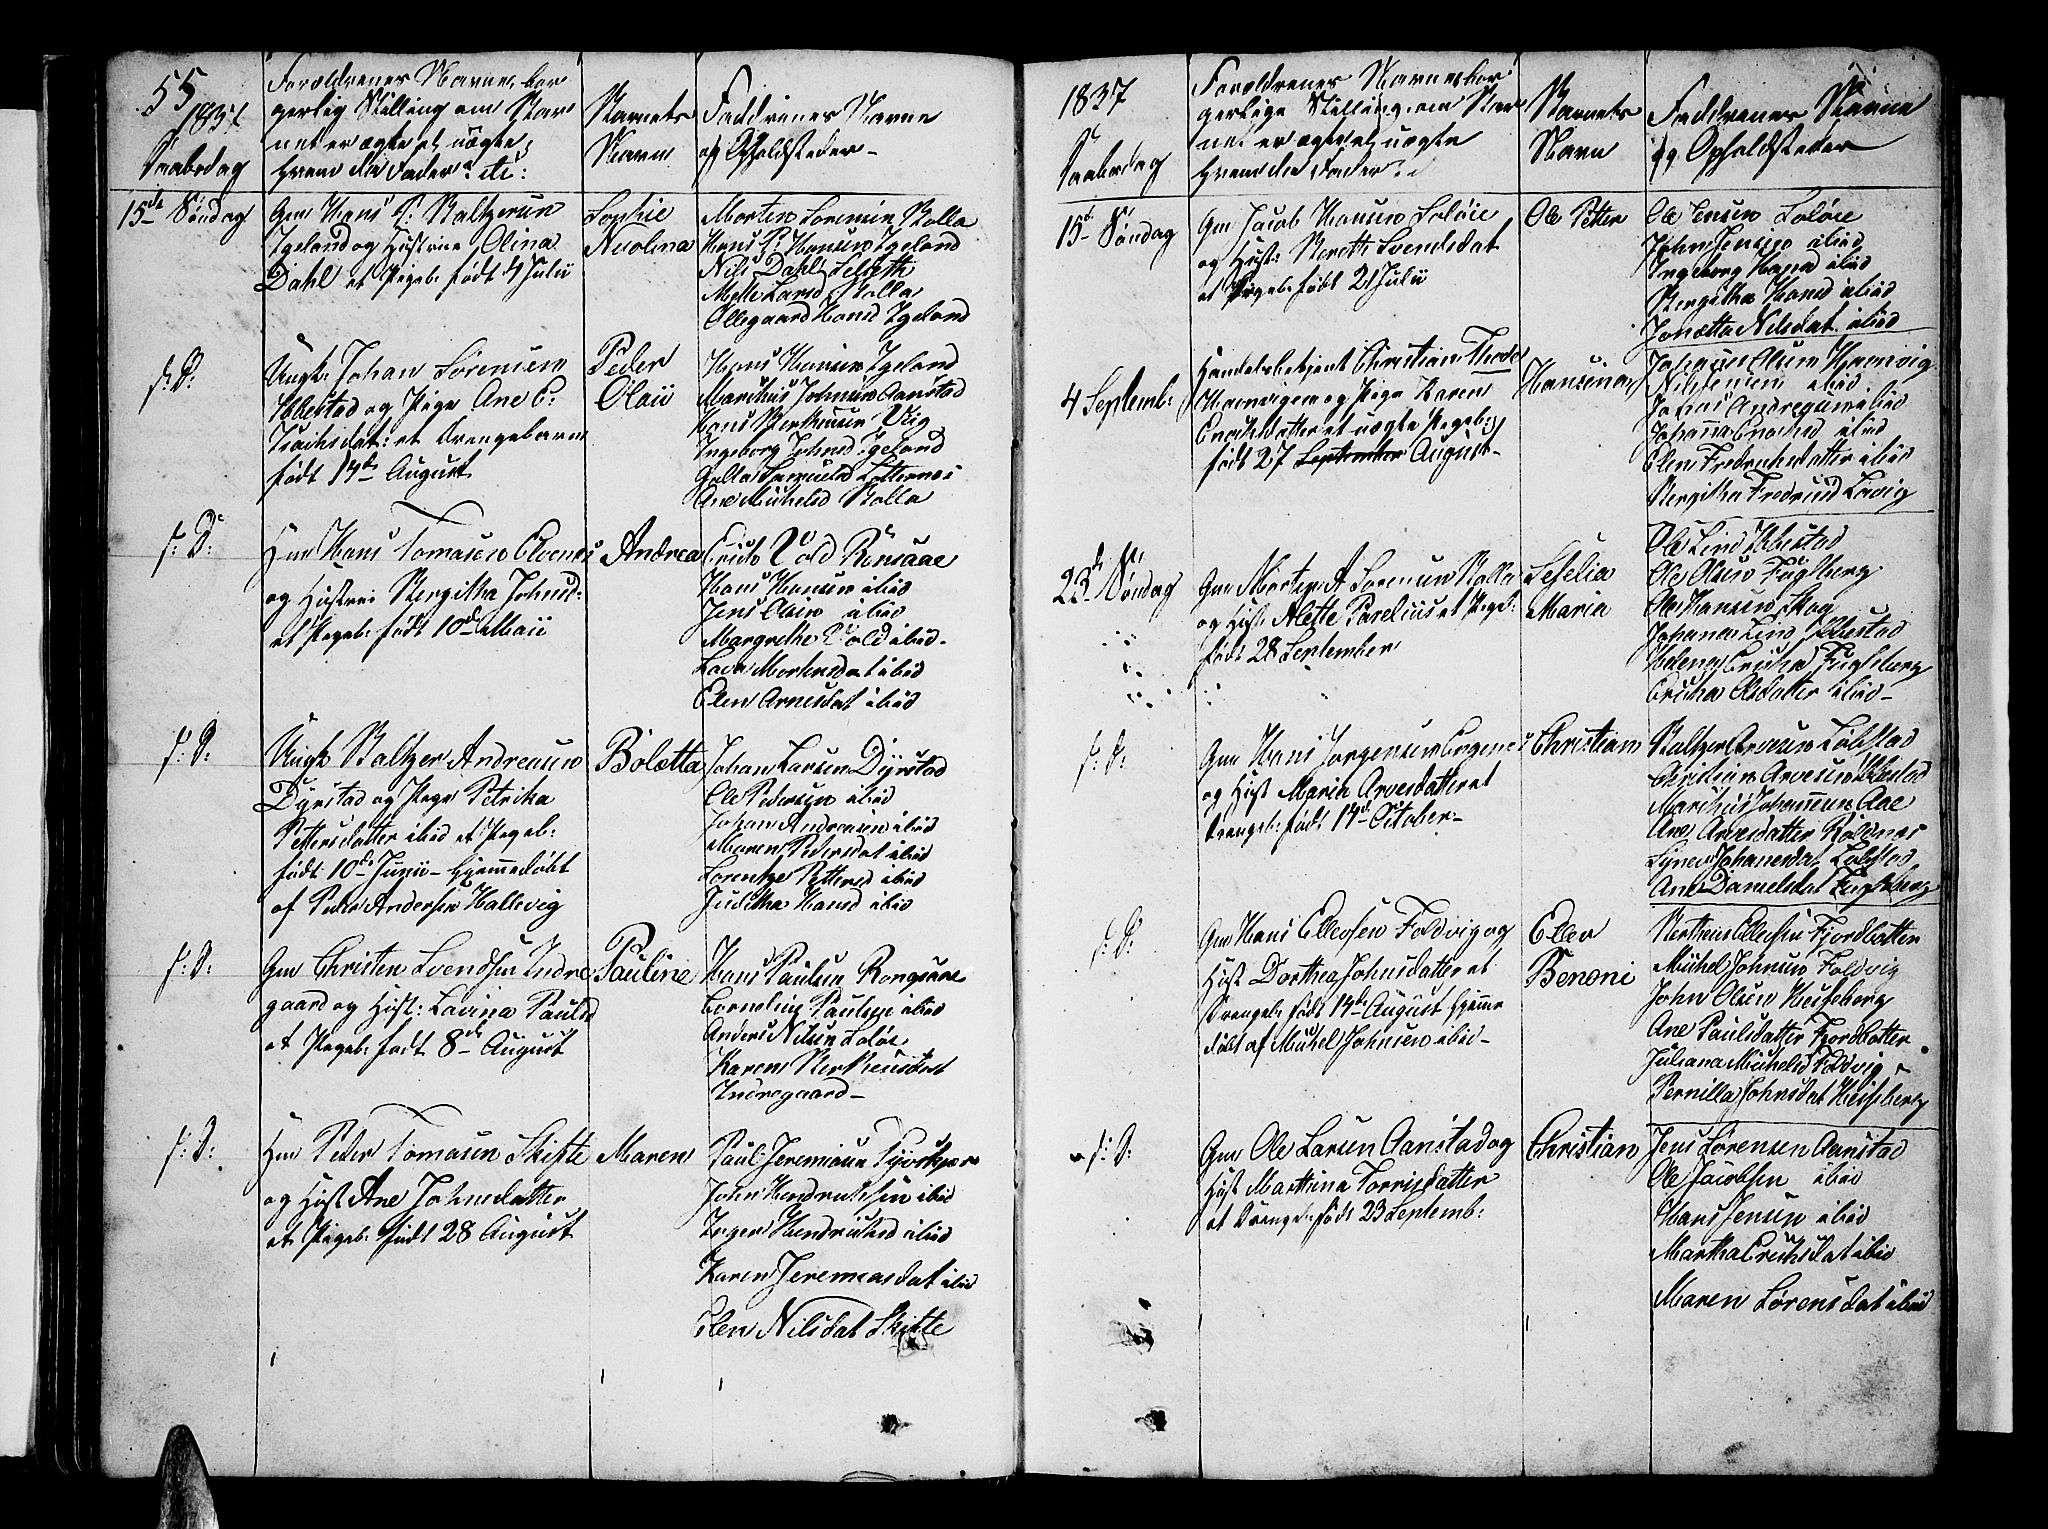 55
1837
Daabsdag
Forældrenes Navne, bor
gerlig Stilling om Bar
net er ægte el. uægte,
hvem da Fader &c:
Barnets
Navn
Faddrenes Navne
og Opholdsteder
15de Søndag
Gm Hans P. Baltzersen
Igeland og Hustrue Olina
Dahl et Pigeb: født 4 Julii
Sophie
Nicolina
Morten Sorensen Rolla
Hans P: Hansen Igeland
Nils Dahl Selseth
Mette Larsd Rolla
Ollegaard Hansd Igeland
s: D:
Ungk: Johan Sörensen
Ibbestad og Pige Ane E.
et Drengebarn
født 14de August
Peder
Olaii
Hans Hansen Igeland
Marthus Johnsen Aanstad
Hans Bertheusen Vig
Ingeborg Johnsd Igeland
Ane Michelsd Rolla
s: D:
Hm Hans Tomasen Elvenes
og Hustrue Bergitha Johnsd:
et Pigeb: født 10de Maii
Andrea
Erich Vold Rensaae
Hans Hansen ibid
Jens Olsen ibid
Margrethe Vold ibid
Lava Mortensdat ibid
Elen Arnesdat ibid
s: D:
Ungk Baltzer Andreasen
Dyrstad og Pige Petrika
Pettersdatter ibid et Pigeb:
født 10de Junii hjemmedøbt
af Peder Andersen Hallevig
Boletta
Johan Larsen Dyrstad
Ole Pedersen ibid
Johan Andreasen ibid
Maren Pedersdat ibid
Lorentze Pettersd ibid
Juditha Hansd ibid
s: D:
Gm Christen Svendsen Indre
gaard og Hust: Lavina Paulsd
et Pigeb: født 8de August
Pauline
Hans Paulsen Rongsaae
Cornelius Paulsen ibid
Anders Nilsen Loløe
Karen Bertheusdat
Indregaard
s: D:
Hm Peder Tomasen Skifte
og Hust Ane Johnsdatter
et Pigeb: født 28 August
Maren
Paul Jeremiasen Tyvskjær
John Hendrichsen ibid
Inger Hendrichsd ibid
Karen Jeremiasdat ibid
Elen Nilsdat Skifte
1837
Daabsdag
Forældrenes Navne bor
gerlige Stilling, om Bar
net er ægte el uægte
hvem da Fader
Barnets
Navn
Faddrenes Navne
og Opholdsteder
15de Søndag
Gm Jacob Hansen Loløe
og Hust: Bereth Svendsdat
et Pigeb: født 21 Julii
Ole Petter
Ole Jensen Loløe
John Jensen ibid
Ingeborg Hansd ibid
Bergitha Hansd ibid
Jonetta Nilsdat ibid
4 Septemb:
Handelsbetjent Christian Thode
Havnvigen og Pige Karen
Enochsdatter et uægte Pigeb:
født 27 September August
Hansina
Johannes Olsen Havnvig
Nils Jensen ibid
Johanna Enochsd ibid
Elen Fredrichsdatter ibid
Bergitha Fredrichsd Lavig
23de Søndag
Gm Morten A Sorensen Rolla
og Hust: Alette Parelius et Pigeb:
født 28 September
Seselia
Maria
Ole Lind Ibbestad
Ole Olsen Fuglberg
Ole Hansen Skog
Johanna Lind Ibbestad
Helena Erichsd Fuglberg
Ericha Olsdatter ibid
s: D:
Gm Hans Jørgensen Engenes
og Hust Maria Arvesdatter et
Drengeb: født 14de October
Christian
Baltzer Arvesen Løbstad
Christian Arvesen Ibbestad
Marthus Johannesen Aae
Ane Arvesdatter Rødnes
Synev Johanesdat Løbstad
Ane Danielsdat Fuglberg
s: D:
Gm Hans Ellevsen Foldvig og
Hust Dorthea Johnsdatter et
Drengeb: født 14de August hjemme
døbt af Michel Johnsen ibid
Ellev
Benoni
Bertheus Ellevsen Fjordbotten
Michel Johnsen Foldvig
John Olsen Heiseberg
Ane Paulsdatter Fjordbotten
Juliana Michelsd Foldvig
Pernilla Johnsdat Heiseberg
s: D:
Gm Ole Larsen Aanstad og
Hust Marthina Torrisdatter
et Drengeb: født 23 Septemb:
Christian
Jens Sørensen Aanstad
Ole Jacobsen ibid
Hans Jensen ibid
Martha Erichsdat ibid
Maren Sørensdat ibid